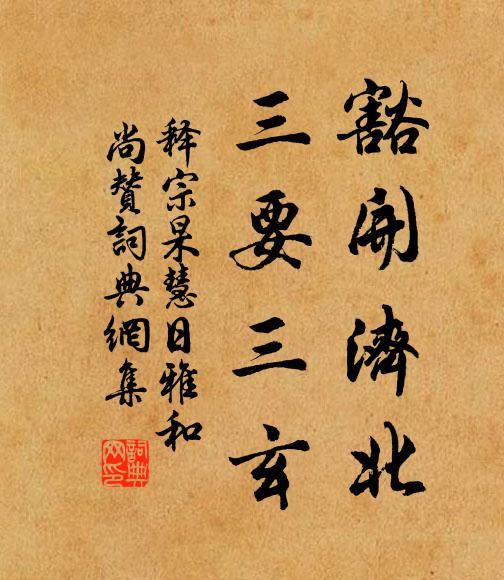 豁開濟北
三要三玄
釋宗杲慧日雅和
尚贊詞典網集
詞典网印